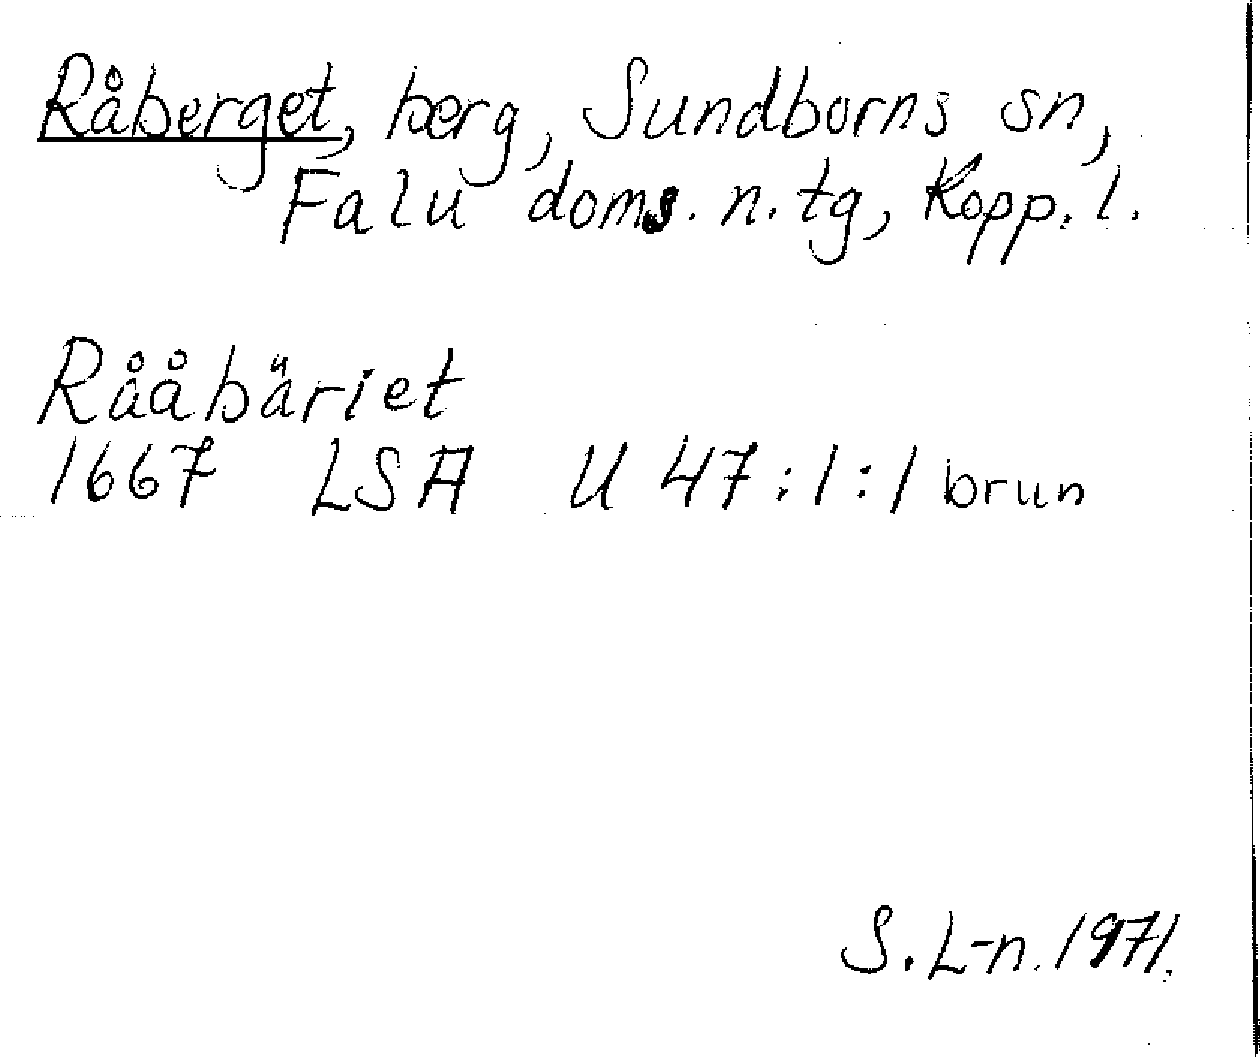 Råberget, berg, Sundborns sn,
Falu doms. n. tg, Kopp. l.
Rååbäriet
1667 LSA U 47:1:1 brun
S. L-n. 1971.